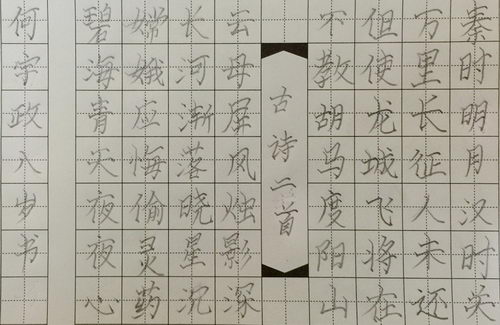 秦时明月汉时关
万里长征人未还
但使龙城飞将在
不教胡马度阳山
古诗二首
云母屏风烛影深
长河渐落晓星沉
嫦娥应悔偷灵药
碧海青天夜夜心
何宇政八岁书